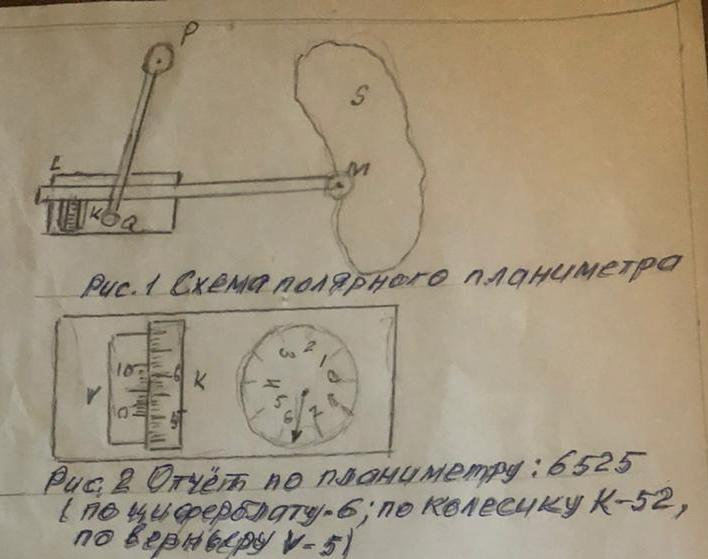 P
S
L
M
K
Q
Рис. 1 Схема полярного планиметра
3 2 1
10 6 K 4
V 5 6 7
0 5
Рис. 2 Отчёт по планиметру: 6525
(по циферблату-6; по колесику К-52,
по верньеру V-5)